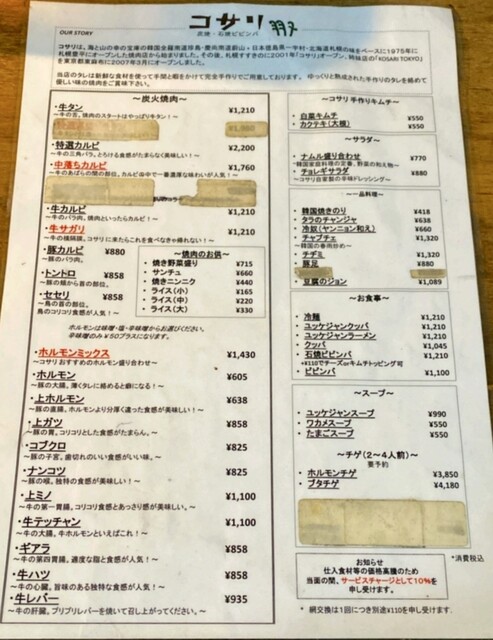 コサリ
OUR STORY
炭焼・石焼ビビンバ
コサリは、海と山の幸の宝庫の韓国全羅南道珍島・慶尚南道蔚山・日本徳島県一宇村・北海道札幌の味をベースに1975年に
札幌豊平にオープンした焼肉店から始まりました。その後、札幌すすきのに2001年「コサリ」オープン、姉妹店の「KOSARI TOKYO」
を東京都東麻布に2007年3月にオープンしました。
当店のタレは新鮮な食材を使って手間と暇をかけて完全手作りでご用意しております。 ゆっくりと熟成された手作りのタレを絡めて
優しい味の焼肉をご賞味下さい。
～炭火焼肉～
・牛タン ¥1,210
～牛の舌。焼肉のスタートはやっぱり牛タン！～
・特選カルビ ¥2,200
～牛の三角バラ。とろける食感がたまらなく美味しい！～
・中落ちカルビ ¥1,760
～牛のあばらの間の部位。カルビ由中で一番濃厚な味わいが人気！～
・牛カルビ ¥1,210
～牛のバラ肉。焼肉といったらカルビ！～
・牛サガリ ¥1,210
～牛の横隔膜。コサリに来たらこれを食べなきゃ帰れない！～
・豚カルビ ¥880
～豚のバラ肉。
・トントロ ¥858
～豚の頬から首の部位。
・セセリ ¥858
～鳥の首の部位。
鳥のコリコリ食感が人気！～
～焼肉のお供～
・焼き野菜盛り ¥715
・サンチュ ¥660
・焼きニンニク ¥440
・ライス(小) ¥165
・ライス(中) ¥220
・ライス(大) ¥330
ホルモンは味噌・塩・辛味噌からお選びください。
辛味噌のみ¥50プラスになります。
・ホルモンミックス ¥1,430
～コサリおすすめのホルモン盛り合わせ～
・ホルモン ¥605
～豚の大腸。薄くタレに絡めると癖になる！～
・上ホルモン ¥638
～豚の直腸。ホルモンより分厚く違った食感が美味しい！～
・上ガツ ¥858
～豚の胃。コリコリとした食感がたまらん。～
・コブクロ ¥825
～豚の子宮。歯切れのいい食感がいい味。～
・ナンコツ ¥825
～豚の喉。独特の食感が人気！～
・上ミノ ¥1,100
～牛の第一胃腸。コリコリ食感とあっさり感が美味しい。～
・牛テッチャン ¥1,100
～牛の大腸。牛ホルモンといえばこれ！～
・ギアラ ¥858
～牛の第四胃腸。適度な脂と食感が人気！～
・牛ハツ ¥858
～牛の心臓。旨味のある独特な食感が人気！～
・牛レバー ¥935
～牛の肝臓。プリプリレバーを焼いて召し上がってください。～
～コサリ 手作りキムチ～
・白菜キムチ ¥550
・カクテキ(大根) ¥550
～サラダ～
・ナムル盛り合わせ ¥770
～韓国家庭料理の定番。野菜の和え物～
・チョレギサラダ ¥880
～コサリ自家製の辛味ドレッシング～
～一品料理～
・韓国焼きのり ¥418
・タラのチャンジャ ¥638
・冷奴(ヤンニョン和え) ¥660
・チャプチェ ¥1,320
～韓国の春雨炒め～
・チヂミ ¥1,320
・豚足 ¥880
・豆腐のジョン ¥1,089
～お食事～
・冷麺 ¥1,210
・ユッケジャンクッパ ¥1,210
・ユッケジャンラーメン ¥1,210
・クッパ ¥1,045
・石焼ビビンバ ¥1,210
*¥110でチーズorキムチトッピング可
・ビビンバ ¥1,100
～スープ～
・ユッケジャンスープ ¥990
・ワカメスープ ¥550
・たまごスープ ¥550
～チゲ(2～4人前)～
要予約
・ホルモンチゲ ¥3,850
・ブタチゲ ¥4,180
*消費税込
お知らせ
仕入食材等の価格高騰のため
当面の間、サービスチャージとして10%を
申し受けます。
* 網交換は1回につき別途¥110を申し受けます。